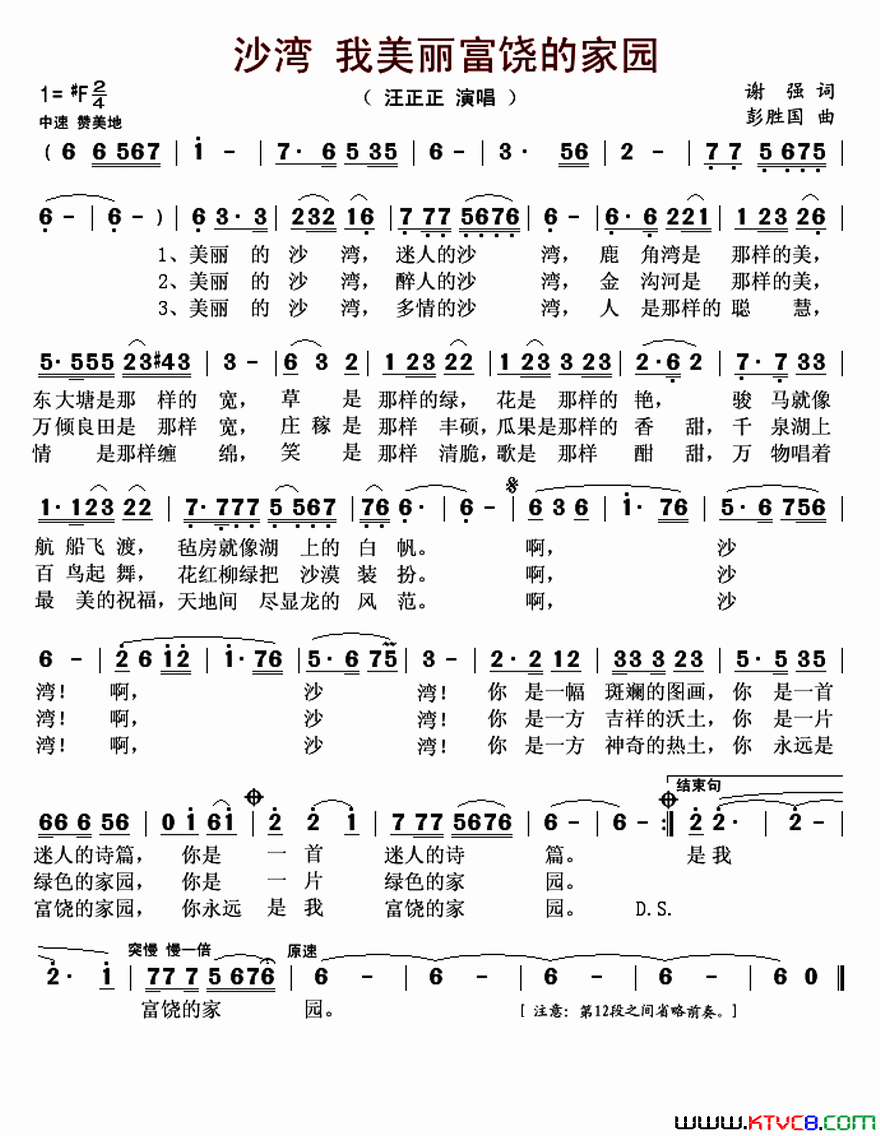 沙湾 我美丽富饶的家园
1= #F 2/4
（ 汪正正 演唱 ）
谢 强 词
中速 赞美地
彭胜国 曲
( 6 6 567 | i - | 7· 6 5 35 | 6 - | 3· 56 | 2 - | 7 7 5 675 |
6 - | 6 - ) | 6 3·3 | 232 16 | 7 77 5676 | 6 - | 6·6 221 | 1 23 26 |
1、美丽 的 沙 湾， 迷人的沙 湾， 鹿 角湾是 那样的美，
2、美丽 的 沙 湾， 醉人的沙 湾， 金 沟河是 那样的美，
3、美丽 的 沙 湾， 多情的沙 湾， 人 是那样的 聪 慧，
5·555 23#43 | 3 - | 6 3 2 | 1 23 22 | 1 23 3 23 | 2·6 2 | 7·7 33 |
东大塘是那 样的 宽， 草 是 那样的绿， 花是 那样的 艳， 骏 马就像
万倾良田是 那样 宽， 庄稼 是 那样 丰硕，瓜果是那样的 香 甜，千 泉湖上
情 是那样缠 绵， 笑 是 那样 清脆，歌是 那样 酣 甜，万 物唱着
1·123 22 | 7·777 5 567 | 76 6· | 6 - | 6 3 6 | i· 76 | 5·6 756 |
航 船飞 渡， 毡房就像湖 上的 白 帆。 啊， 沙
百 鸟起 舞， 花红柳绿把 沙漠 装 扮。 啊， 沙
最 美的祝福，天地间 尽显龙的 风 范。 啊， 沙
6 - | 2 6 i2 | i· 76 | 5·6 75 | 3 - | 2·2 12 | 33 3 23 | 5·5 35 |
湾！ 啊， 沙 湾！ 你 是一幅 斑斓的图画，你 是一首
湾！ 啊， 沙 湾！ 你 是一方 吉祥的沃土，你 是一片
湾！ 啊， 沙 湾！ 你 是一方 神奇的热土，你 永远是
结束句
66 6 56 | 0 i 6i | 2 2 i | 7 77 5676 | 6 - | 6 - :| 2 2· | 2 -
迷人的诗篇， 你是 一 首 迷人的诗 篇。 是我
绿色的家园， 你是 一 片 绿色的家 园。
富饶的家园， 你永远 是 我 富饶的家 园。 D.S.
突慢 慢一倍 原速
2· i | 77 7 5 676 | 6 - | 6 - | 6 - | 6 - | 6 0 ‖
富饶的家 园。
[ 注意：第12段之间省略前奏。]
www.KTVC8.com